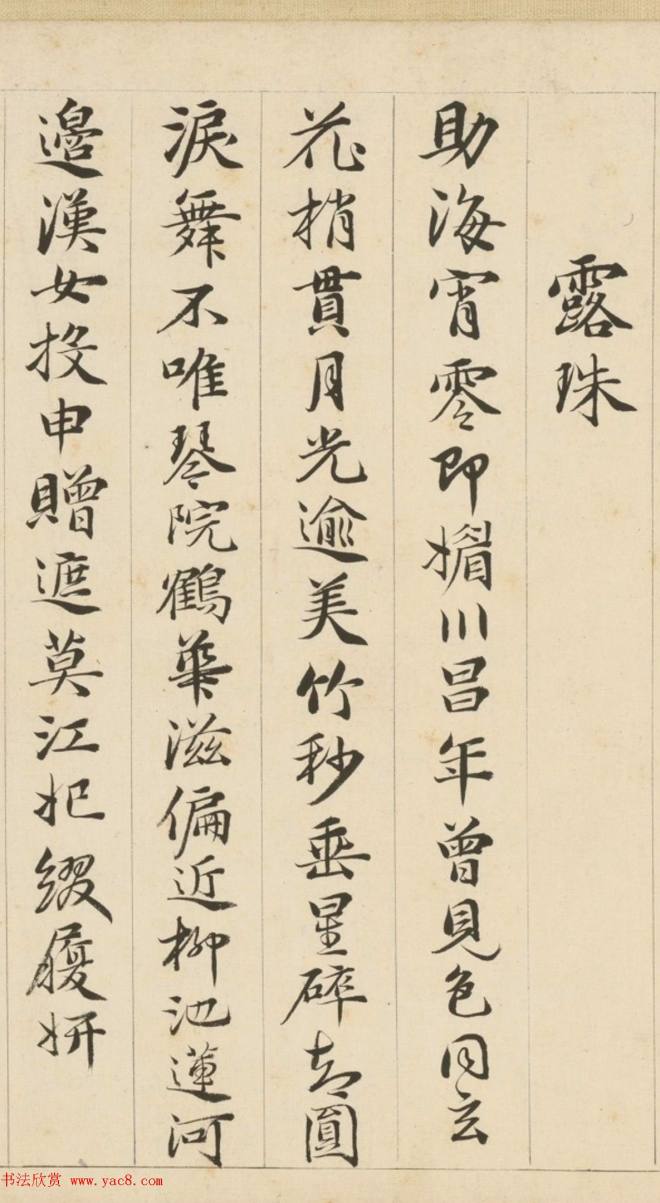 露珠
助海宵零即媚川昌年曾見色同玄
花梢貫月光逾美竹秒垂星碎却圓
淚舞不唯琴院鶴華滋偏近柳池蓮河
邊漢女投申贈遮莫江妃綴履妍
书法欣赏 www.yac8.com